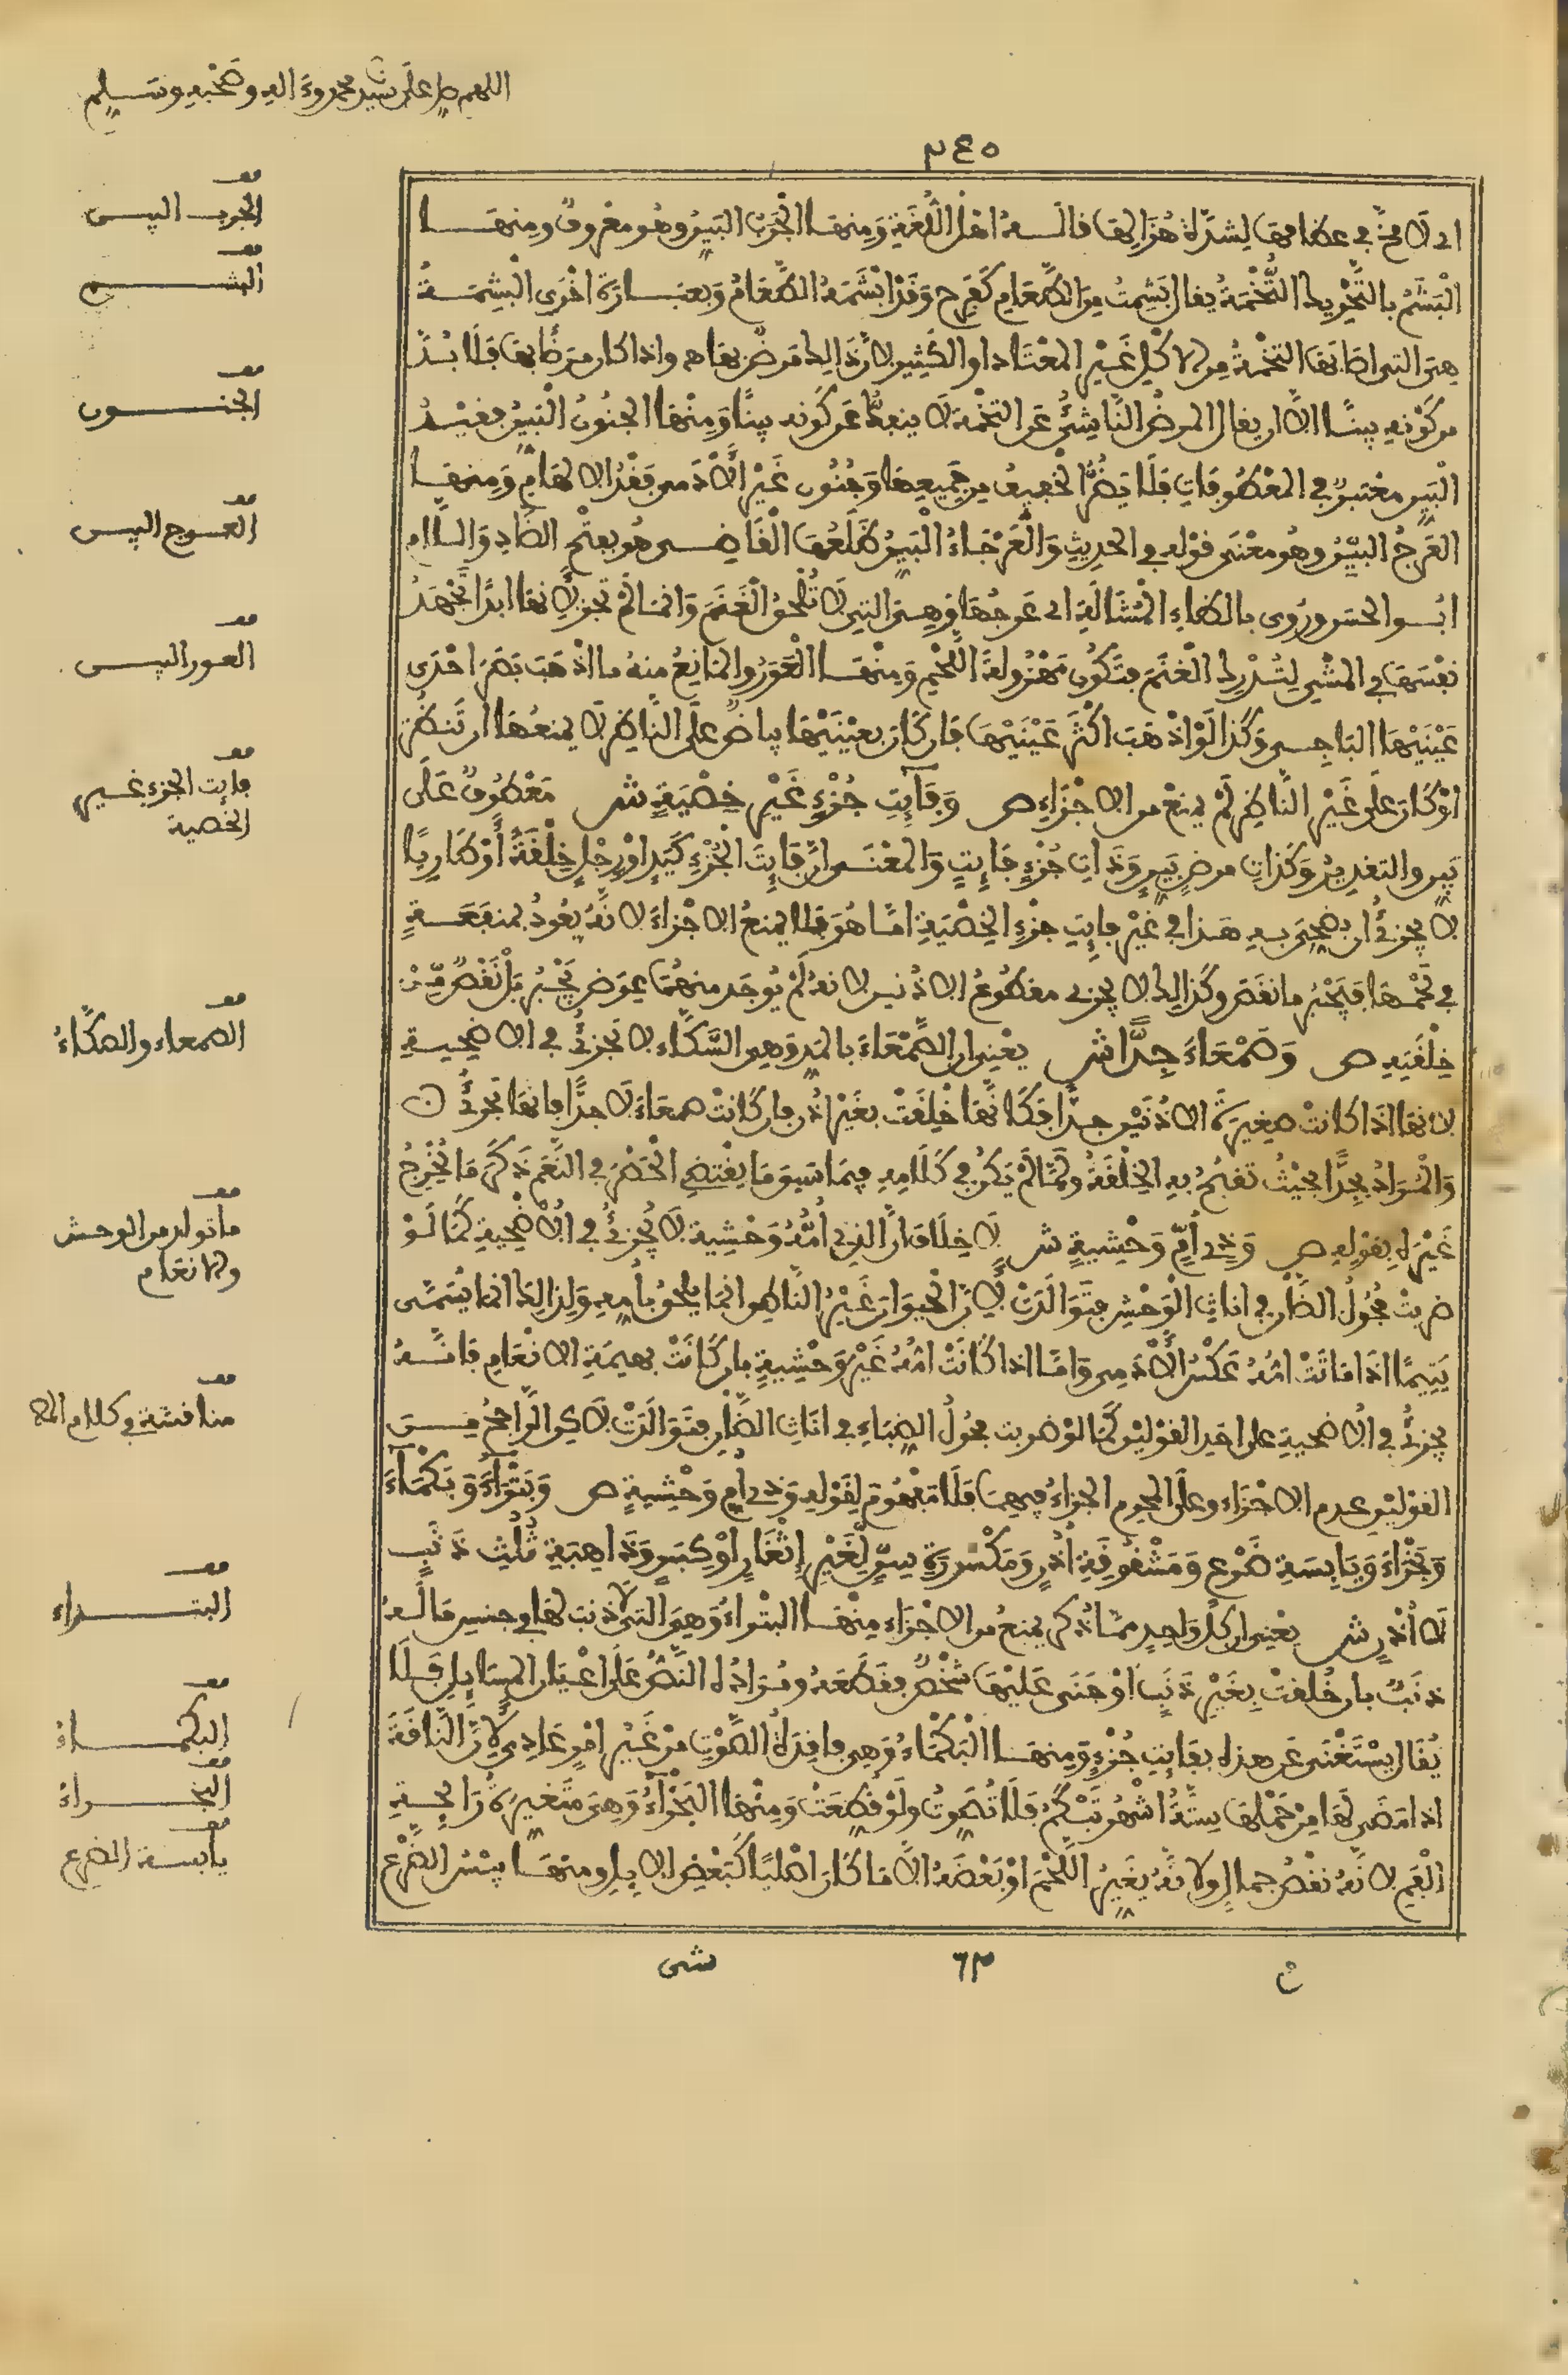 اللهم صل على سيدنا محمد وعلى اله وصحبه وسلم
٣٤٥
اى لا مخ فى عظامها لشدة هزالها قاله اهل اللغة ومنها الجرب البين وهو معروف ومنها
البشم بالتحريك التخمة يقال بشمت من الطعام كفرح وقد ابشمه الطعام وبعبارة اخرى البشمة
هى التى اصابتها التخمة من الاكل غير المعتاد او الكثير لان ذالك مرض بها واذا كان مرضا بها فلا بد
من كونه بينا الا ان يقال المرض الناشئ عن التخمة لا ينفك عن كونه بينا ومنها الجنون البين فقيد
البين معتبر فى المعطوفات فلا يضر الخفيف من جميعها وجنون غير الآدمى فقد الالهام ومنها
العرج البين وهو معنى قوله فى الحديث والعرجاء البين ضلعها القاضى هو بفتح الضاد واللام
ابو الحسن وروى بالظاء المشالة اى عرجها وهى التى لا تلحق الغنم وانما لم تجز لانها ابدا تجهد
نفسها فى المشى لتدرك الغنم فتكون مهزولة اللحم ومنها العور والمانع منه ما اذهب بصر احدى
عينيها الباجى وكذا لو اذهب اكثر عينيها فان كان بعينيها بياض على الناظر لا يمنعها ان تنظر
او كان على غير الناظر لم يمنع من الاجزاء ص وفايت جزء غير خصية ش معطوف على
بين والتقدير وكذات مرض بين وذات جزء فايت والمعنى ان فايت الجزء كيد او رجل خلقة او طاريا
لا يجزئ ان يضحى به هذا فى غير فايت جزء الخصية اما هو فلا يمنع الاجزاء لانه يعود بمنفعة
فى لحمها فيجبر ما نقص وكذالك لا يجزى مقطوع الاذنين لانه لم يوجد منهما عوض يجبر بل نقص من
خلقته ص وصمعاء جدا ش يعنى ان الصمعاء بالمد وهى السكاء لا تجزئ فى الاضحية
لانها اذا كانت صغيرة الاذنين جدا فكانها خلقت بغير اذن فان كانت صمعاء لا جدا فانها تجزئ
والمراد بجدا بحيث تقبح به الخلقة ولما لم يكن فى كلامه فيما سبق ما يقتضى الحصر فى النعم ذكر ما يخرج
غيره بقوله ص وذى ام وحشية ش لا خلاف ان الذى امه وحشية لا يجزئ فى الاضحية كما لو
ضربت فحول الضأن فى اناث الوحش فتوالدت لان الحيوان غير الناطق انما يلحق بامه ولذالك انما يسمى
يتيما اذا ماتت امه عكس الآدمى واما اذا كانت امه غير وحشية بان كانت بهيمة الانعام فانه
يجزئ فى الاضحية على احد القولين كما لو ضربت فحول الضباء فى اناث الضأن فتوالدت لاكن الراجح من
القولين عدم الاجزاء وعلى الجزم الجزاء فيهما فلا مفهوم لقوله وذى ام وحشية ص وبتراء وبكماء
وبخراء ويابسة ضرع ومشقوقة اذن ومكسورة سن لغير اثغار او كبر وذاهبة ثلث ذنب
لا اذن ش يعنى ان كل واحد مما ذكر يمنع من الاجزاء منها البتراء وهى التى لا ذنب لها فى جنس ما له
ذنب بان خلقت بغير ذنب او جنى عليها شخص فقطعه ومراده النص على اعيان المسايل فلا
يقال يستغنى عن هذه بفايت جزء ومنها البكماء وهى فاقدة الصوت من غير امر عادى لان الناقة
اذا مضى لها من حملها ستة اشهر تبكم فلا تصوت ولو قطعت ومنها البخراء وهى متغيرة رايحة
الفم لانه نقص جمال ولانه يغير اللحم او بعضه الا ما كان اصليا كبعض الابل ومنها يبس الضرع
قف
الجرب البين
قف
البشم
قف
الجنون
قف
العرج البين
قف
العور البين
قف
فايت الجزء غير
الخصية
قف
الصمعاء والصكاء
قف
ما تولد من الوحش
والانعام
قف
مناقشة فى كلام المص
قف
البتراء
قف
البكماء
قف
البخراء
قف
يابسة الضرع
ن ٦٣ شى